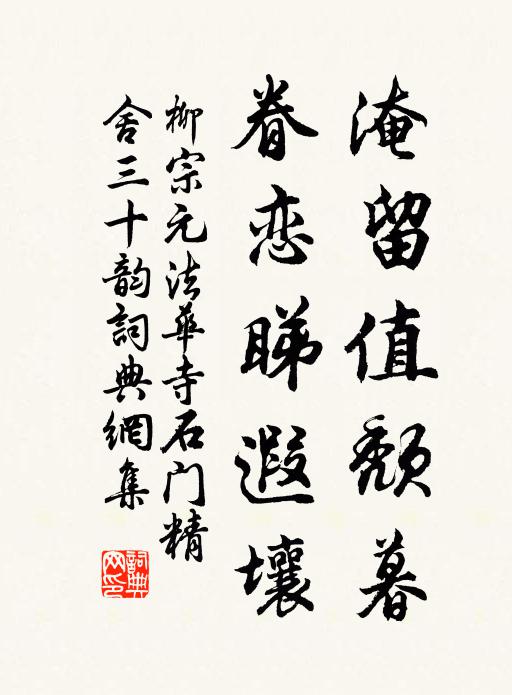 淹留值颓暮
眷恋睇遐壤
柳宗元法華寺石门精
舍三十韵詞典網集
詞典
网印